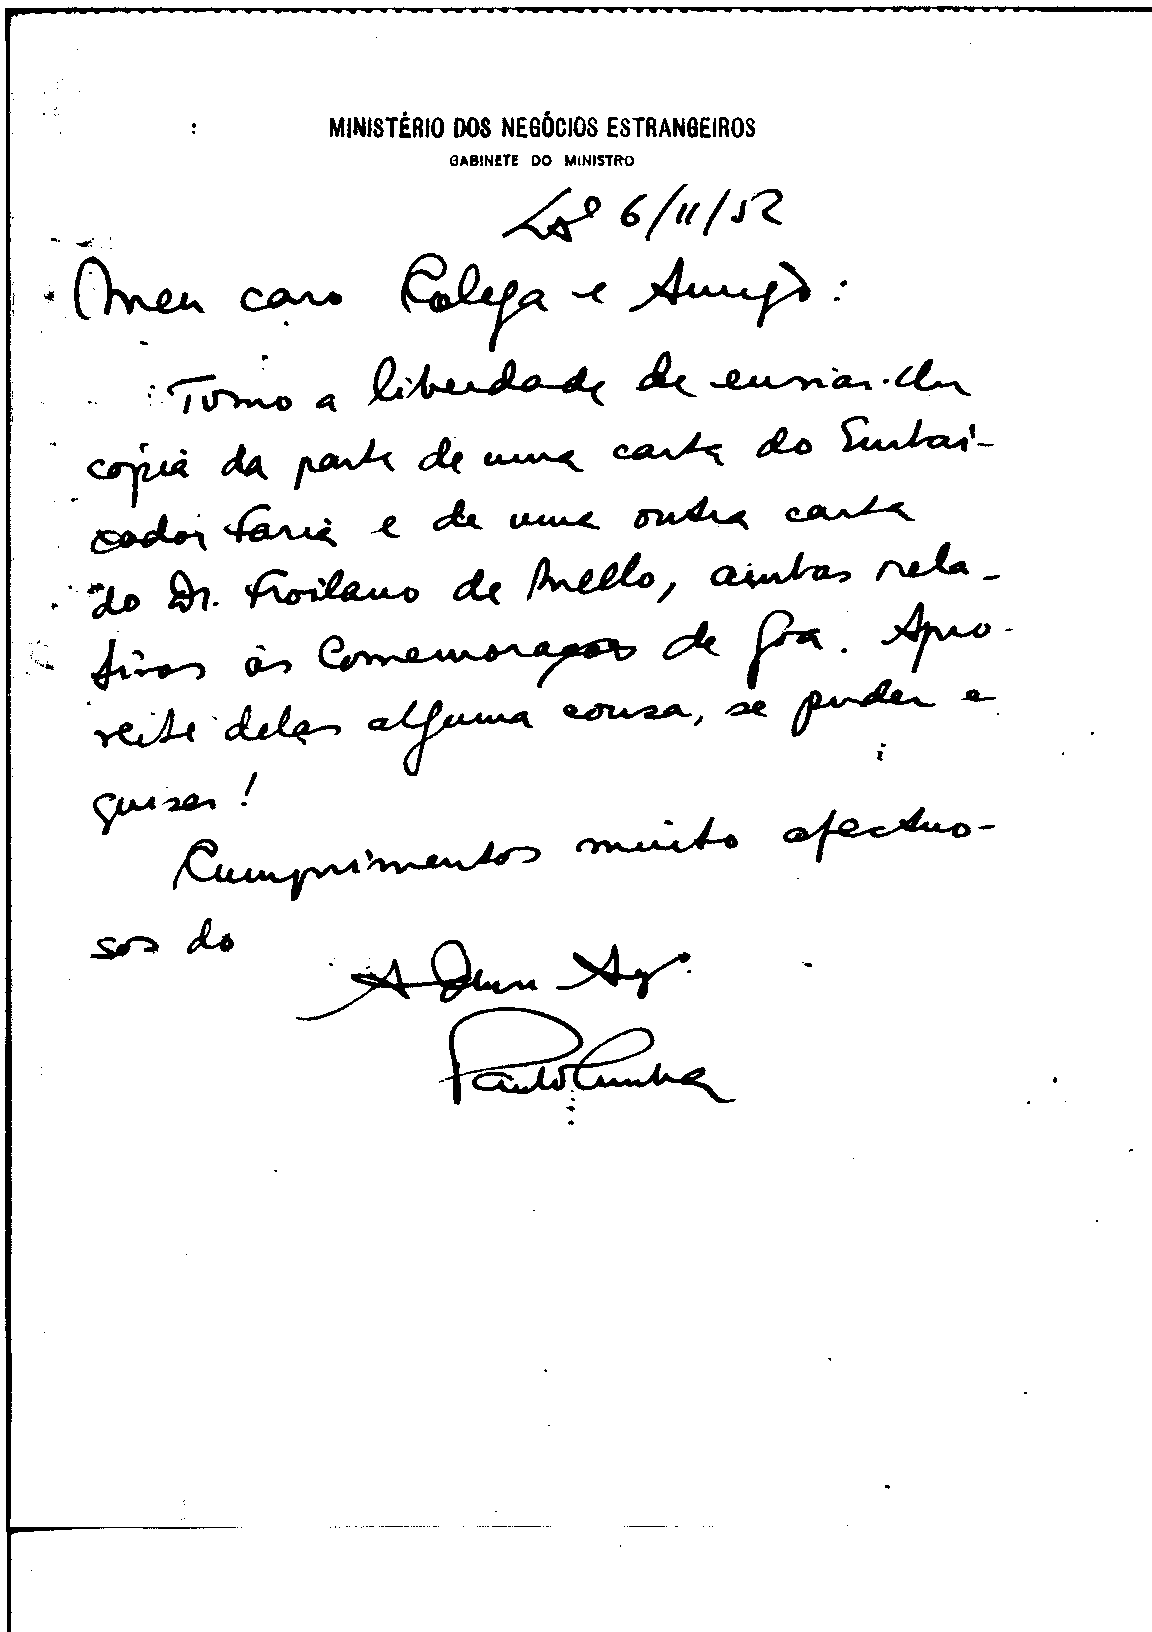 MINISTÉRIO DOS NEGÓCIOS ESTRANGEIROS
GABINETE DO MINISTRO
Lxª 6/11/52
Meu caro Colega e Amigo:
Tomo a liberdade de enviar-lhe
cópia da parte de uma carta do Embai-
xador Faria e de uma outra carta
do Dr. Froilano de Mello, ambas rela-
tivas às Comemorações de Goa. Apro-
veite delas alguma cousa, se puder e
quiser!
Cumprimentos muito afectuo-
sos do
Paulo Cunha